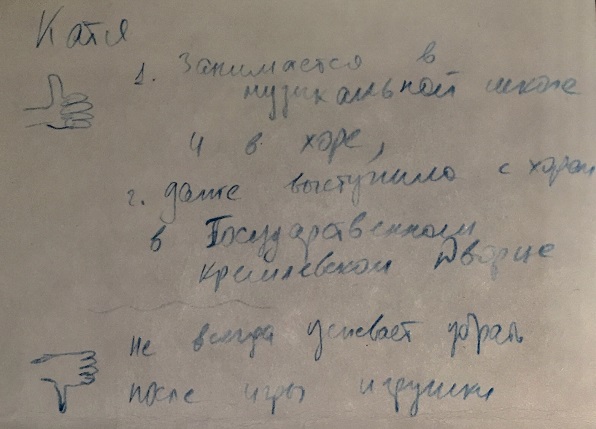 Катя
1. Занимается в
музыкальной школе
и в хоре,
2. даже выступила с хором
в Государственном
Кремлевском Дворце
Не всегда успевает убрать
после игры игрушки